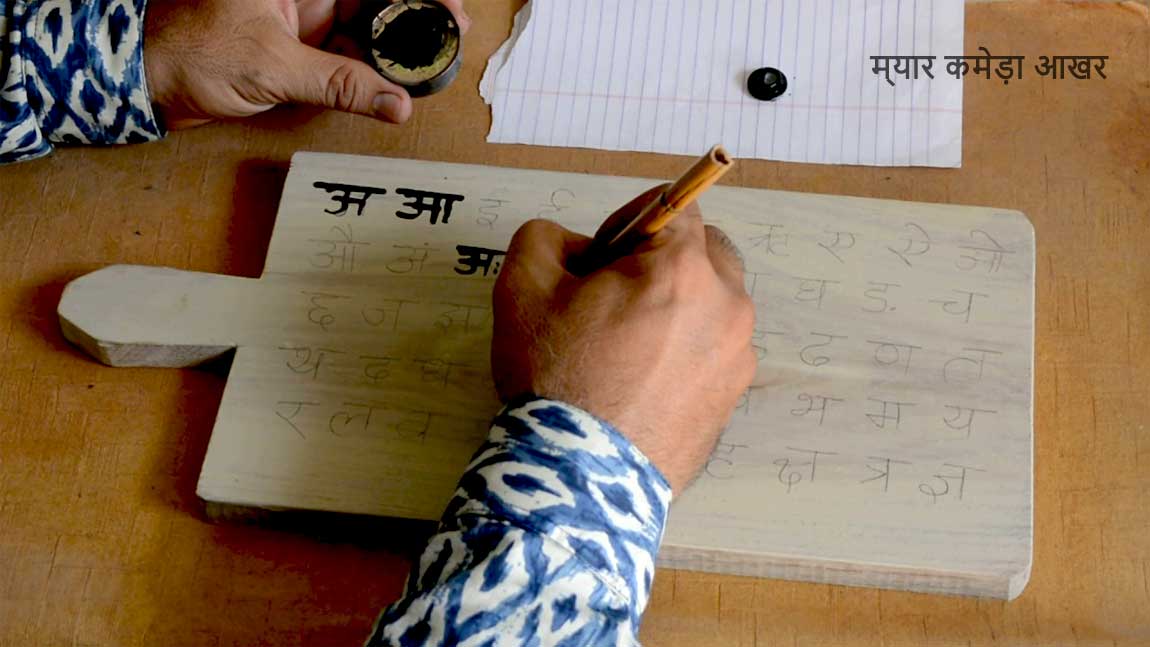 म्यार कमेड़ा आखर
अ आ इ ई ऋ ए ऐ ओ
औ अं अः घ ङ च
छ ज झ ढ ण त
थ द ध भ म य
र ल व ह क्ष त्र ज्ञ